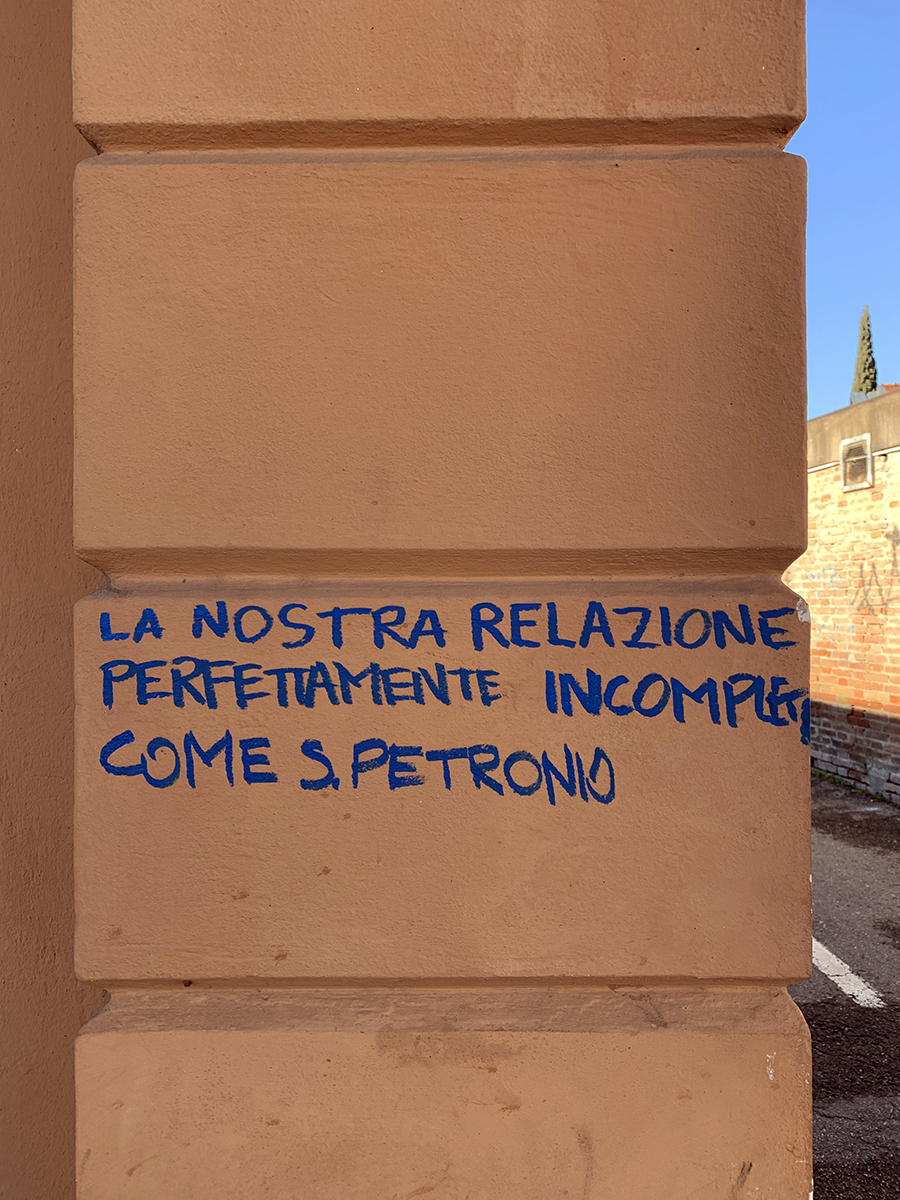 LA NOSTRA RELAZIONE
PERFETTAMENTE INCOMPLETA
COME S. PETRONIO